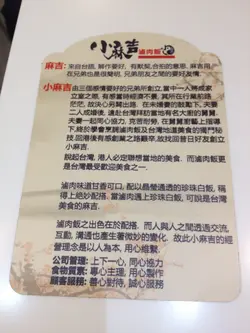 小麻吉 滷肉飯
麻吉：來自台語, 解作要好、有默契, 合拍的意思. 麻吉用
在兄弟也是很簡明, 兄弟朋友之間的要好友情.
小麻吉 由三個感情要好的兄弟所創立, 當中一人將成家
立室之際, 有感當時經濟不景, 其所在行業前路
茫茫, 故決心另闢出路. 在未婚妻的鼓勵下, 夫妻
二人成婚後, 遠赴台灣拜訪當地有名大廚的舅舅.
夫妻一起同心協力, 克苦耐勞, 在舅舅嚴厲上指導
下, 終於學會烹調滷肉飯及台灣地道美食的獨門秘
技. 回港後有感創業之路艱辛, 故找回昔日好友創立
小麻吉.
說起台灣, 港人必定聯想當地的美食, 而滷肉飯更
是台灣最受歡迎美食之一.
滷肉味道甘香可口, 配以最優過選的珍珠白飯, 可說
稱得上絕妙配搭. 當滷肉遇上珍珠白飯, 可說是台灣
美食的麻吉.
滷肉飯之出色在於配搭, 而人與人之間透過交流,
互動, 溝通也產生著微妙的變化. 故此小麻吉的經
營理念是以人為本, 用心維繫.
公司管理：上下一心, 同心協力
食物質素：專心主理, 用心製作
顧客服務：善心對待, 誠心服務